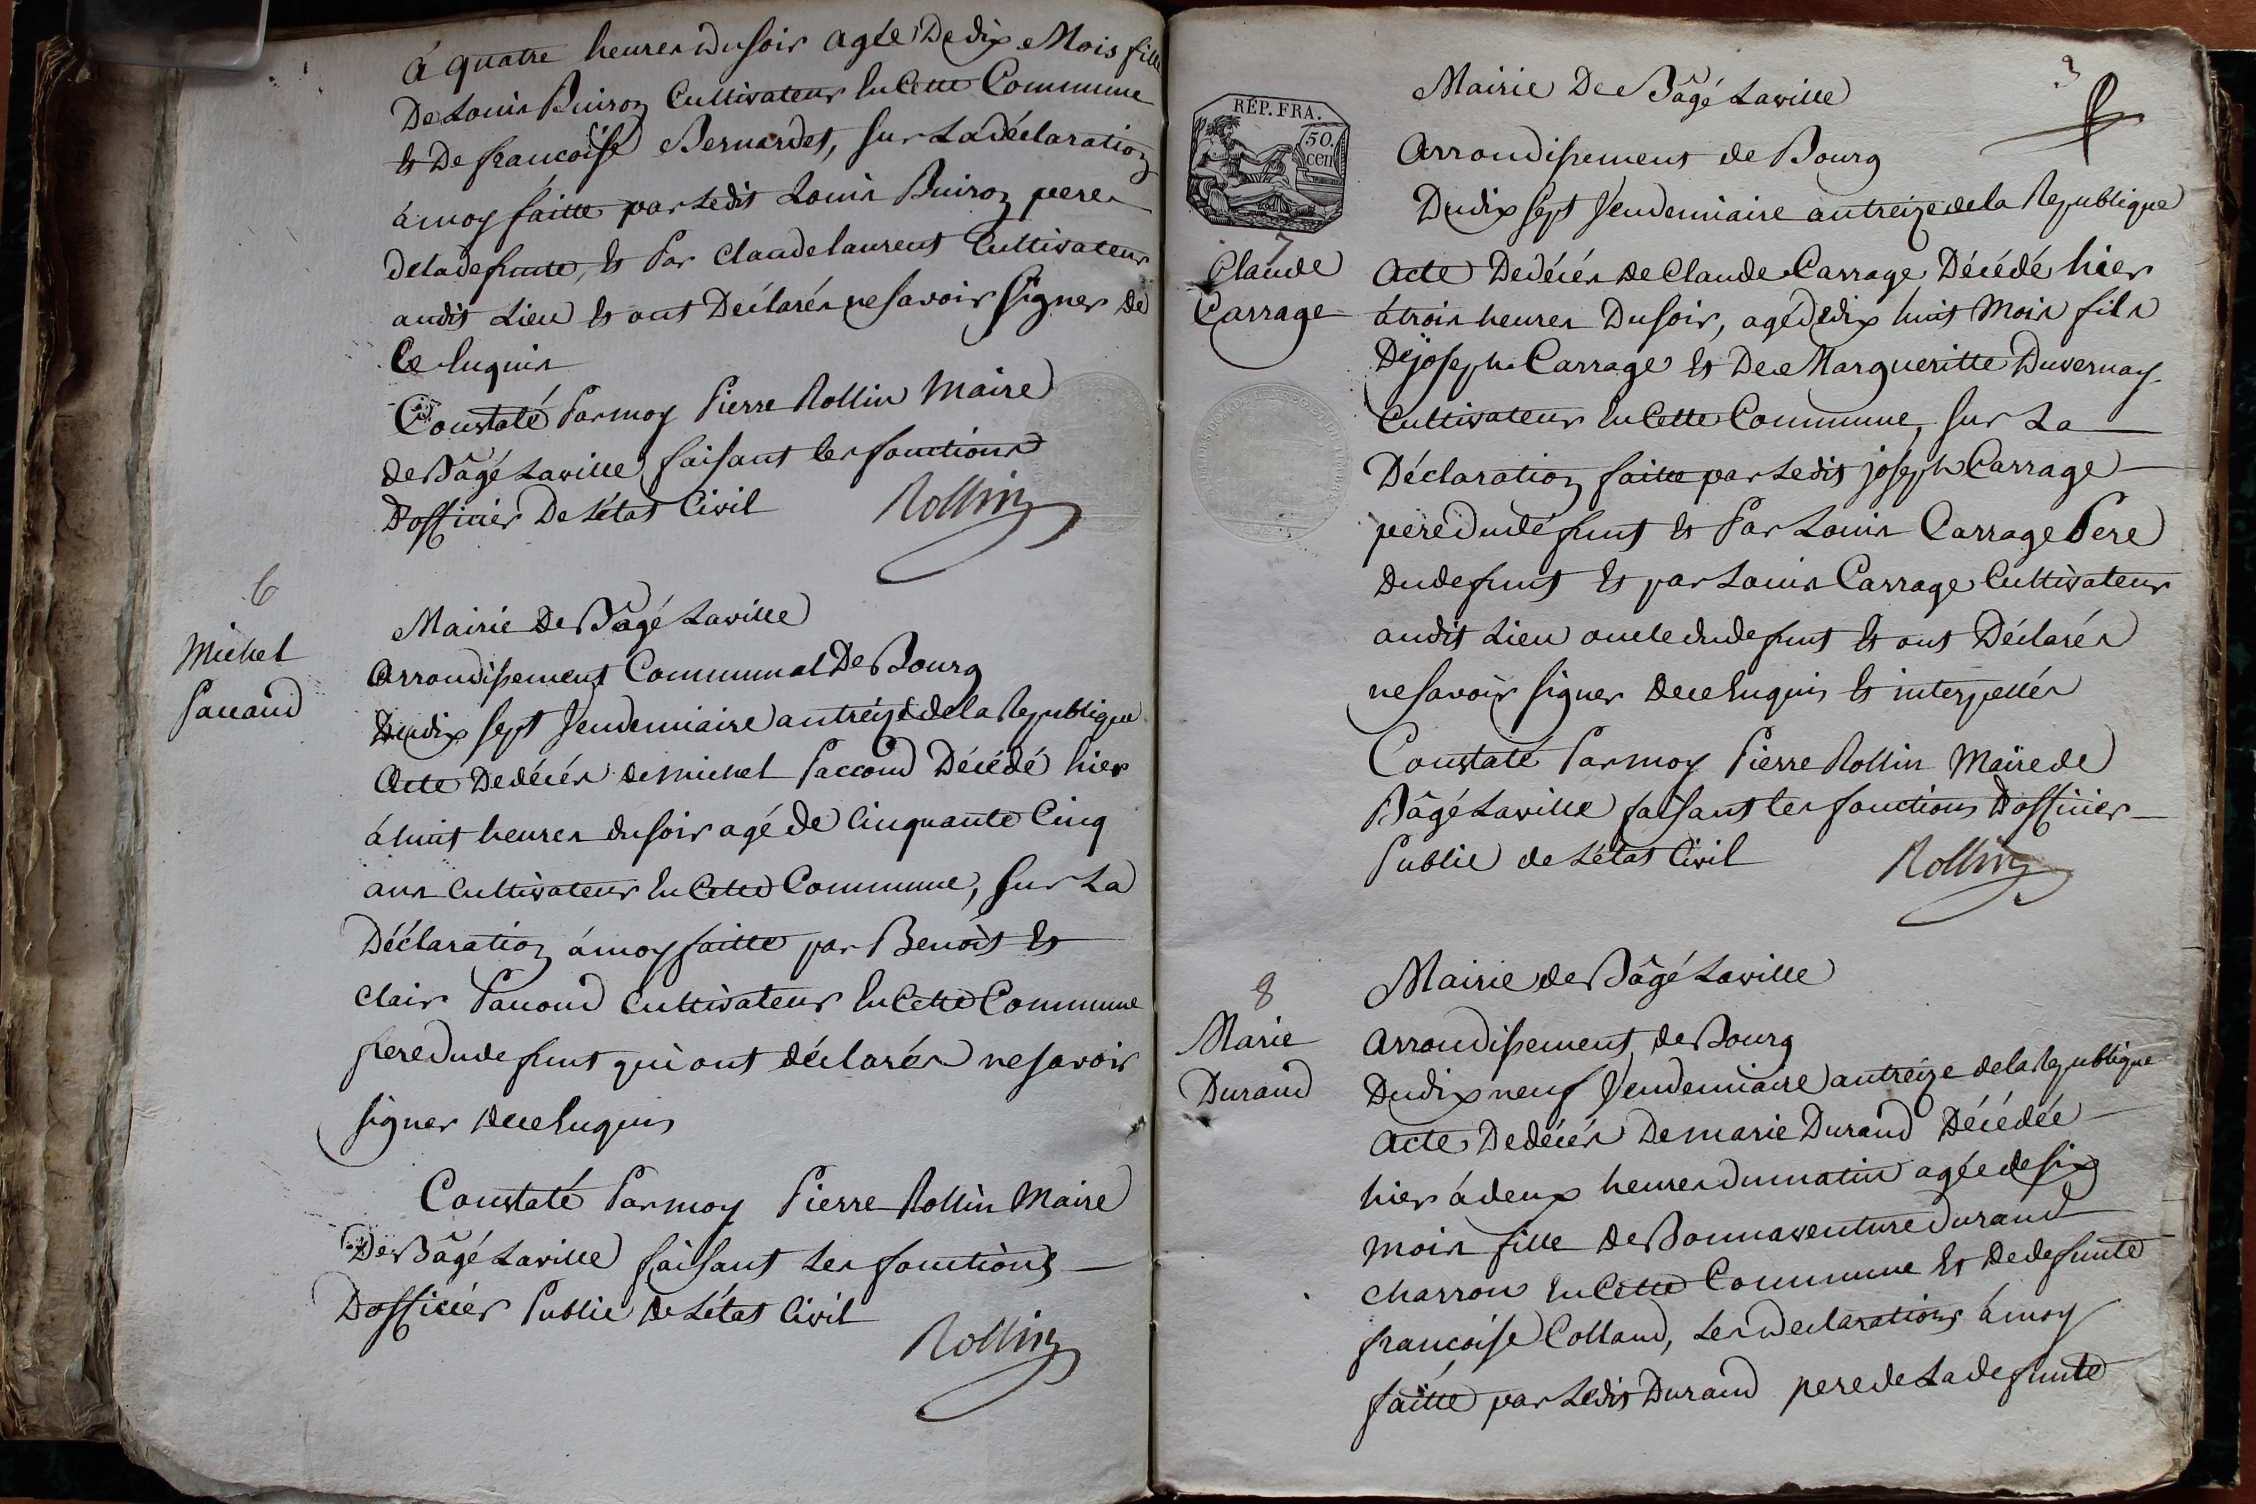 à quatre heures du soir agée De dix Mois fille
De Louis Buiron Cultivateur En Cette Commune
Et De francoise Bernardet, sur La déclaration
à moy faitte par Ledit Louis Buiron pere
de la defunte, Et Par Claude laurent Cultivateur
audit Lieu Et ont Déclarés ne savoir signer De
Ce Enquis
Constaté Par moy Pierre Rollin Maire
de Bâgé Laville faisant les fonctions
D'officier De L'état Civil
Rollin
6
Michel
Paccaud
Mairie De Bâgé Laville
Arrondissement Communal De Bourg
Du dix sept Vendemiaire an treize de la Republique
Acte De décés de michel Paccoud Décédé hier
à huit heures du soir agé de Cinquante Cinq
ans Cultivateur En Cette Commune, sur La
Déclaration à moy faitte par Benoit Et
Clair Paccoud Cultivateur En Cette Commune
frere du defunt qui ont déclarés ne savoir
signer de ce Enquis
Constaté Par moy Pierre Rollin Maire
De Bâgé Laville faisant Les fonctions
D'officier Public De L'état Civil
Rollin
3
RÉP. FRA.
50.
cen
Mairie De Bâgé Laville
Arrondissement de Bourg
Du dix sept Vendemiaire an treize de la Republique
7
Claude
Carrage
Acte De décés De Claude Carrage Décédé hier
à trois heures Du soir, agé de dix huit Mois fils
De joseph Carrage Et De Margueritte Duvernay
Cultivateur En Cette Commune, sur La
Déclaration faitte par Ledit joseph Carrage
pere du défunt Et Par Louis Carrage Pere
Du defunt Et par Louis Carrage Cultivateur
audit Lieu oncle du defunt Et ont Déclarés
ne savoir signer de ce Enquis Et interpellés
Constaté Par moy Pierre Rollin Maire de
Bâgé Laville faisant les fonctions D'officier
Public de L'état Civil
Rollin
8
Marie
Durand
Mairie de Bâgé Laville
Arrondissement de Bourg
Du dix neuf Vendemiaire an treize de la Republique
Acte De décés De marie Durand Décédée
hier à deux heures du matin agée de six
mois fille de Bonnaventure Durand
charron En Cette Commune Et De defunte
francoise Colland, Les declarations à moy
faitte par Ledit Durand pere de La defunte